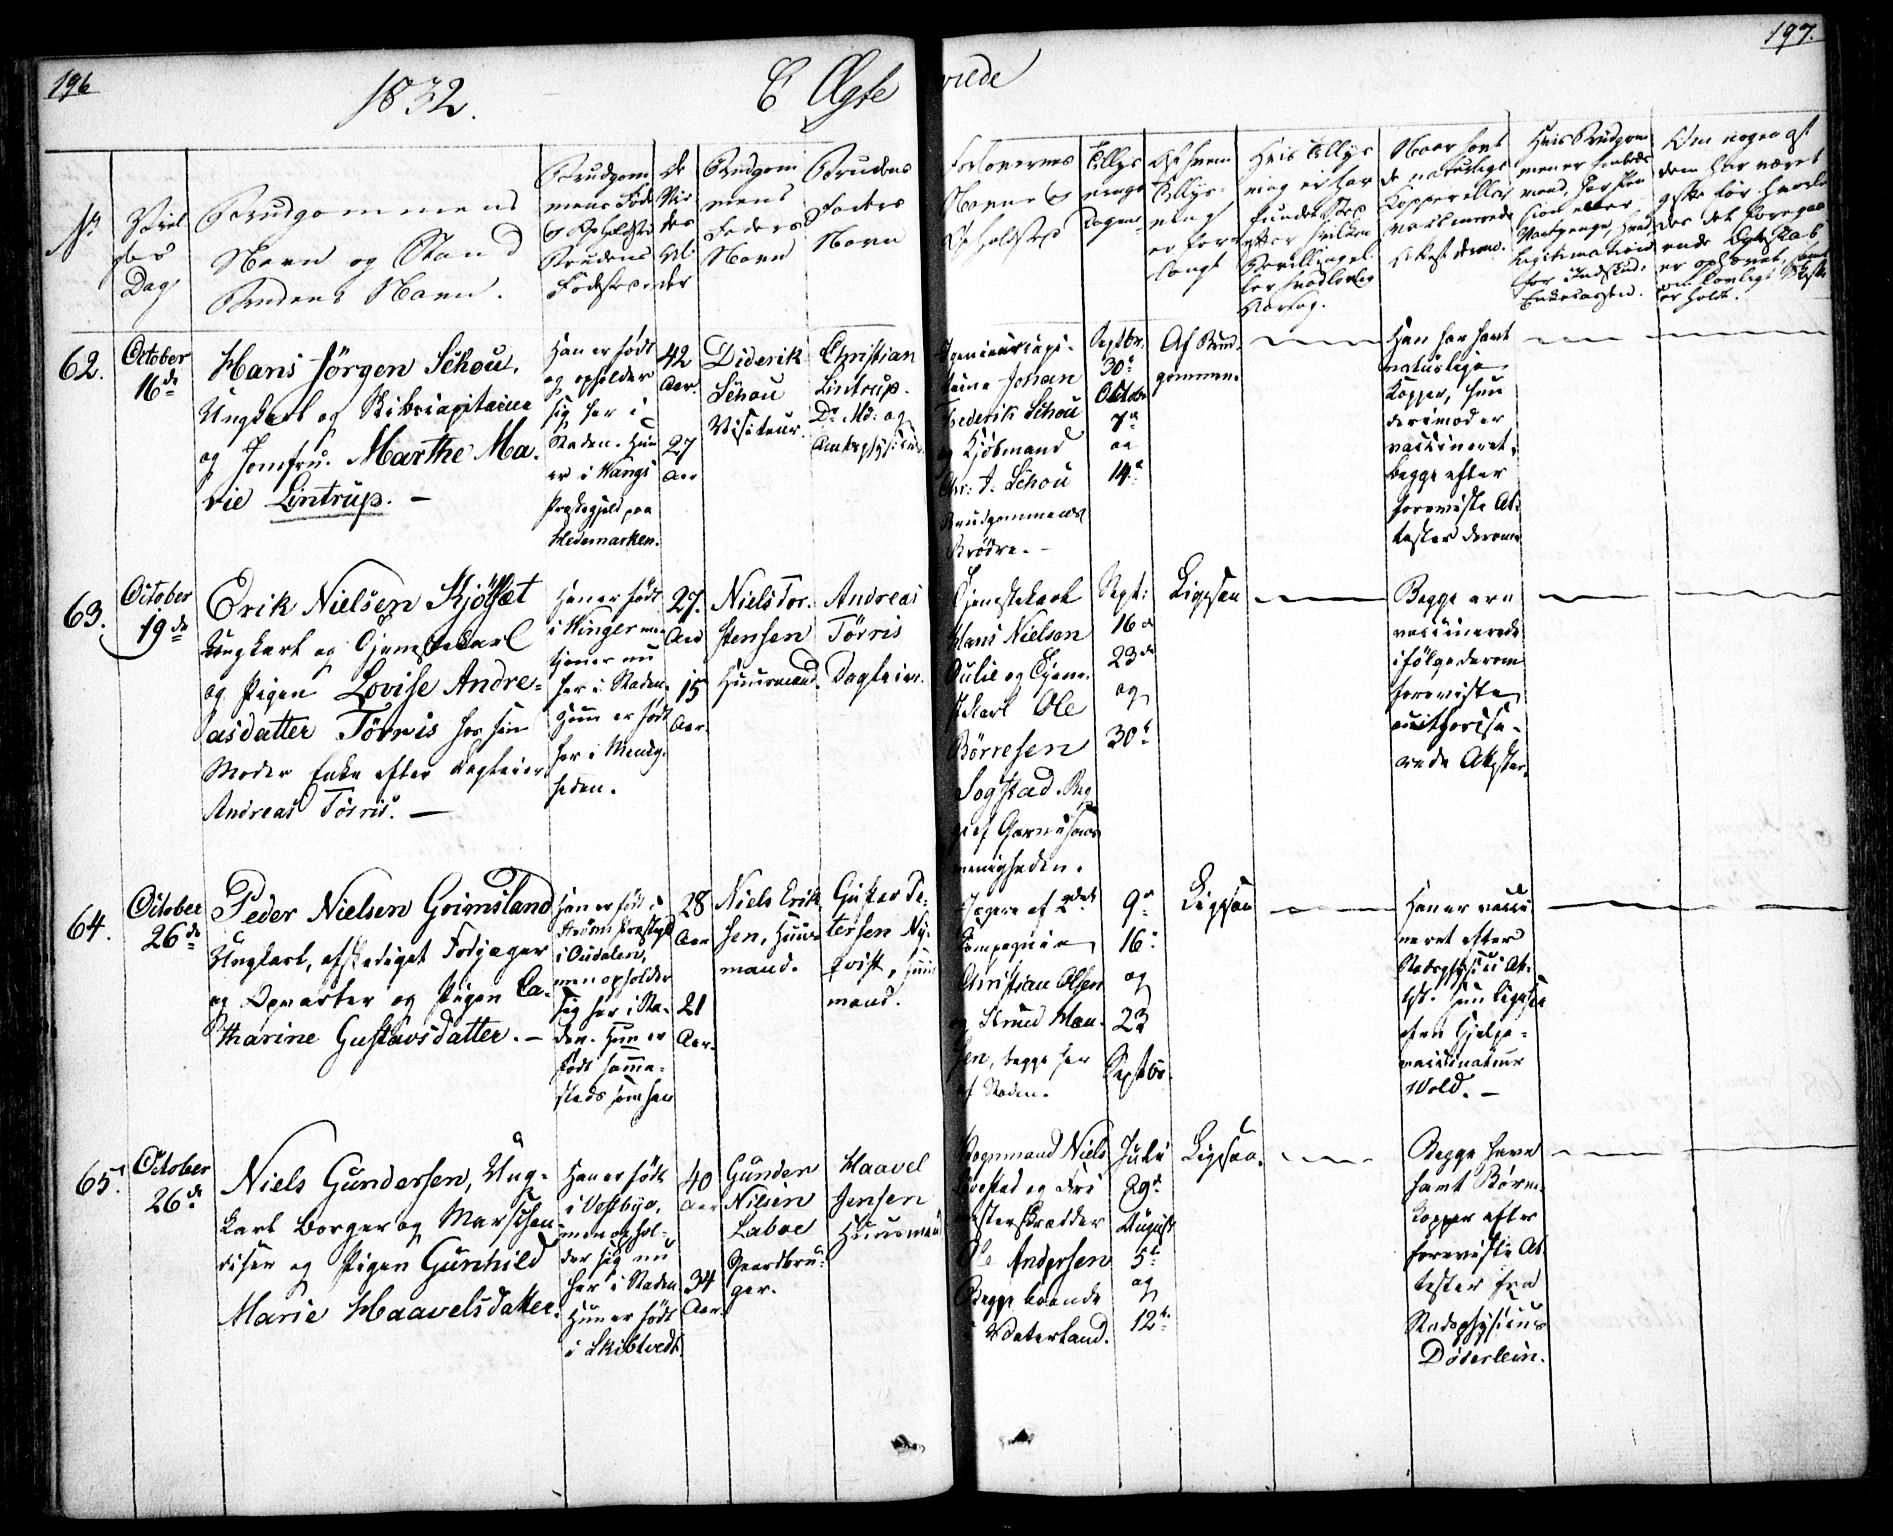 196
1832.
E Ægte
viede
197.
No
Viel
ses
Dag
Brudgommens
Navn og Stand
Brudens Navn.
Brudgom
mens Føde
& Opholdsted
Brudens
Fødested
De
Vie
des
Al
der
Brudgom
mens
Faders
Navn
Brudens
Faders
Navn
Forlovernes
Navne &
Opholdsted
Tillys
nings
Dagene
Af hvem
Tillys-
ning
er for-
langt
Hvis Tillys
ning ei har
fundet Sted
efter hvilken
Bevilling el
ler
Naar havt
de naturlige
Kopper eller
vaccinerede
Hvis Brudgom
men er Embeds
mand, har Pen
sion eller
Vartpenge, hvad
Legitimation
for Indskud i
Enkecassen.
Om nogen af
dem har været
gifte før hvorle
des det foregaa
ende Ægteskab
er ophævet, samt
om lovligt Skifte
er holdt.
62.
October
16de
Hans Jörgen Schou,
Ungkarl og Skibscapitaine
og Jomfru. Marthe Ma-
rie Lintrup. —
Han er født
og opholder
sig her i
Staden. Hun
er i Vangs
Præstegjeld paa
Hedemarken.
42
Aar
27
Aar
Diderik
Schou
Visiteur.
Christian
Lintrup.
Dr. Md: og
Amtsphysicus
Johan
Frederik Schou
og Kjöbmand
Chr: J. Schou
Brudgommens
Brödre. —
Septbr.
30te
Octobr
7de
og
14de
Af Brud-
gommen.
Han har havt
naturlige
Kopper, hun
derimod er
vaccineret,
begge efter
foreviste At-
tester derom
63.
October
19de
Erik Nielsen Kjölset
Ungkarl og Tjenestekarl
og Pigen Lovise Andre-
asdatter Törris hos sin
Moder Enke efter Dagleier
Andreas Törris. —
Han er født
i Vinger men
tjener nu
her i Staden.
Hun er født
her i Menig-
heden.
27.
Aar
15
Aar.
Niels Tor-
stensen
Huusmand.
Andreas
Törris
Dagleier.
Tjenestekarl
Hans Nielsen
Julie og Tjene-
stekarl Ole
Börresen
Sogstad. Beg
ge af Garnisons
menigheden.
Sept:
16de
23de
og
30te
Ligesaa
Begge ere
vaccinerede
ifölge derom
foreviste
authorise-
rede Attester.
64.
October
26de
Peder Nielsen Grimsland
Ungkarl, afskediget Fodjæger
og Opvarter og Pigen Ca-
tharine Gustavsdatter. —
Han er född i
Ströms Præstegjeld
i Oudalen,
men opholder
sig her i Sta-
den. Hun er
född samme-
steds som han
28
Aar
21
Aar.
Niels Erik-
sen, Huus-
mand.
Gustav Pe-
tersen Ny-
qvist, Huus
mand.
Jægere af 2det
Compagnie
Christian Olsen
og Knud Han-
sen, begge her
af Staden.
9de
16de
og
23
Septbr.
Ligesaa
Han er vacci
neret efter
Stadsphysici At-
test. Hun ligesaa
efter Hjelpe-
vaccinateur
Wold. —
65.
October
26de
Niels Gundersen, Ung-
karl Borger og Marschan-
diser og Pigen Gunhild
Marie Haavelsdatter.
Han er född
i Vestbye,
men ophol-
der sig nu
her i Staden.
Hun er född
i Skibtvedt.
40
Aar
34
Aar.
Gunder
Nilsen
Labae
Gaardbru-
ger.
Haavel
Jensen
Huusmand
Vognmand Niels
og Fri
mesterskrædder
Ole Andersen
Begge boende
i Vaterland.
Juli
29de
August
5te
og
12te
Ligesaa.
Begge have
havt Börne-
kopper efter
foreviste At-
tester fra
Stadsphysicus
Döderlein.